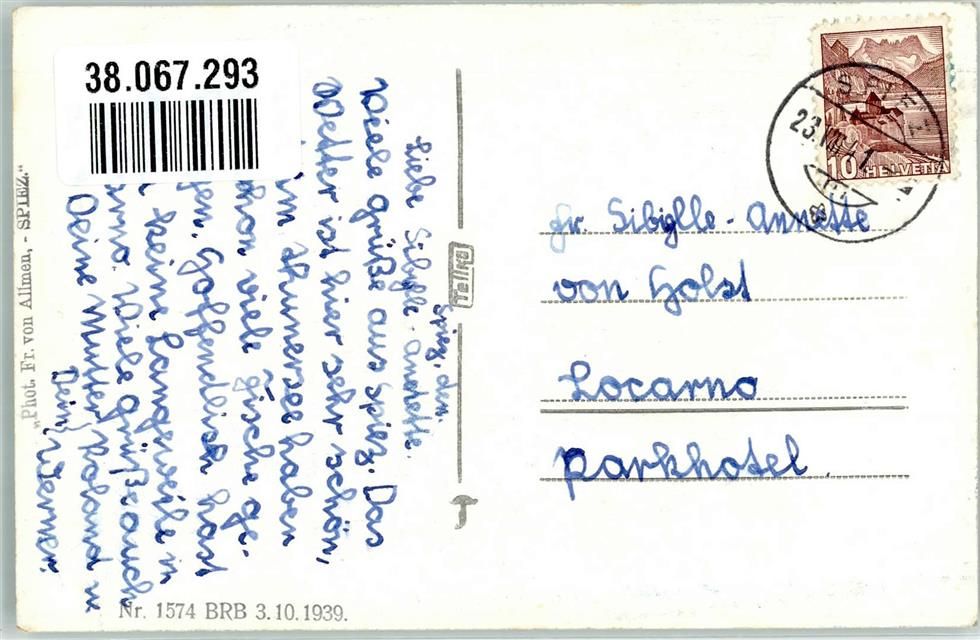 38.067.293
Spiez, den
Liebe Sibylle-Annette.
Viele Grüße aus Spiez. Das
Wetter ist hier sehr schön,
im Thunersee haben
viele Fische ge-
Hoffendlich hast
keine Langweile in
Viele Grüße auch
Deine Mutter Roland u
Dein Werner.
"Phot. Fr. von Allmen, - SPIEZ."
Nr. 1574 BRB 3.10.1939.
Tellko
10 HELVETIA
SPIEZ
23.VII.41
Fr. Sibylle-Annette
von Holst
Locarno
Parkhotel.